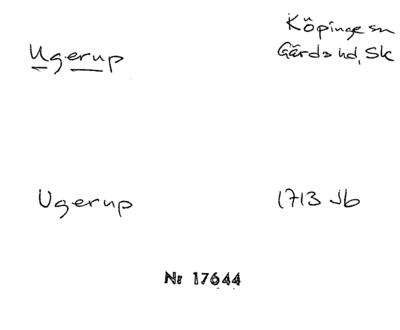 Ugerup
Köpinge sn
Gärds hd, Sk
Ugerup
1713 Jb
Nr 17644